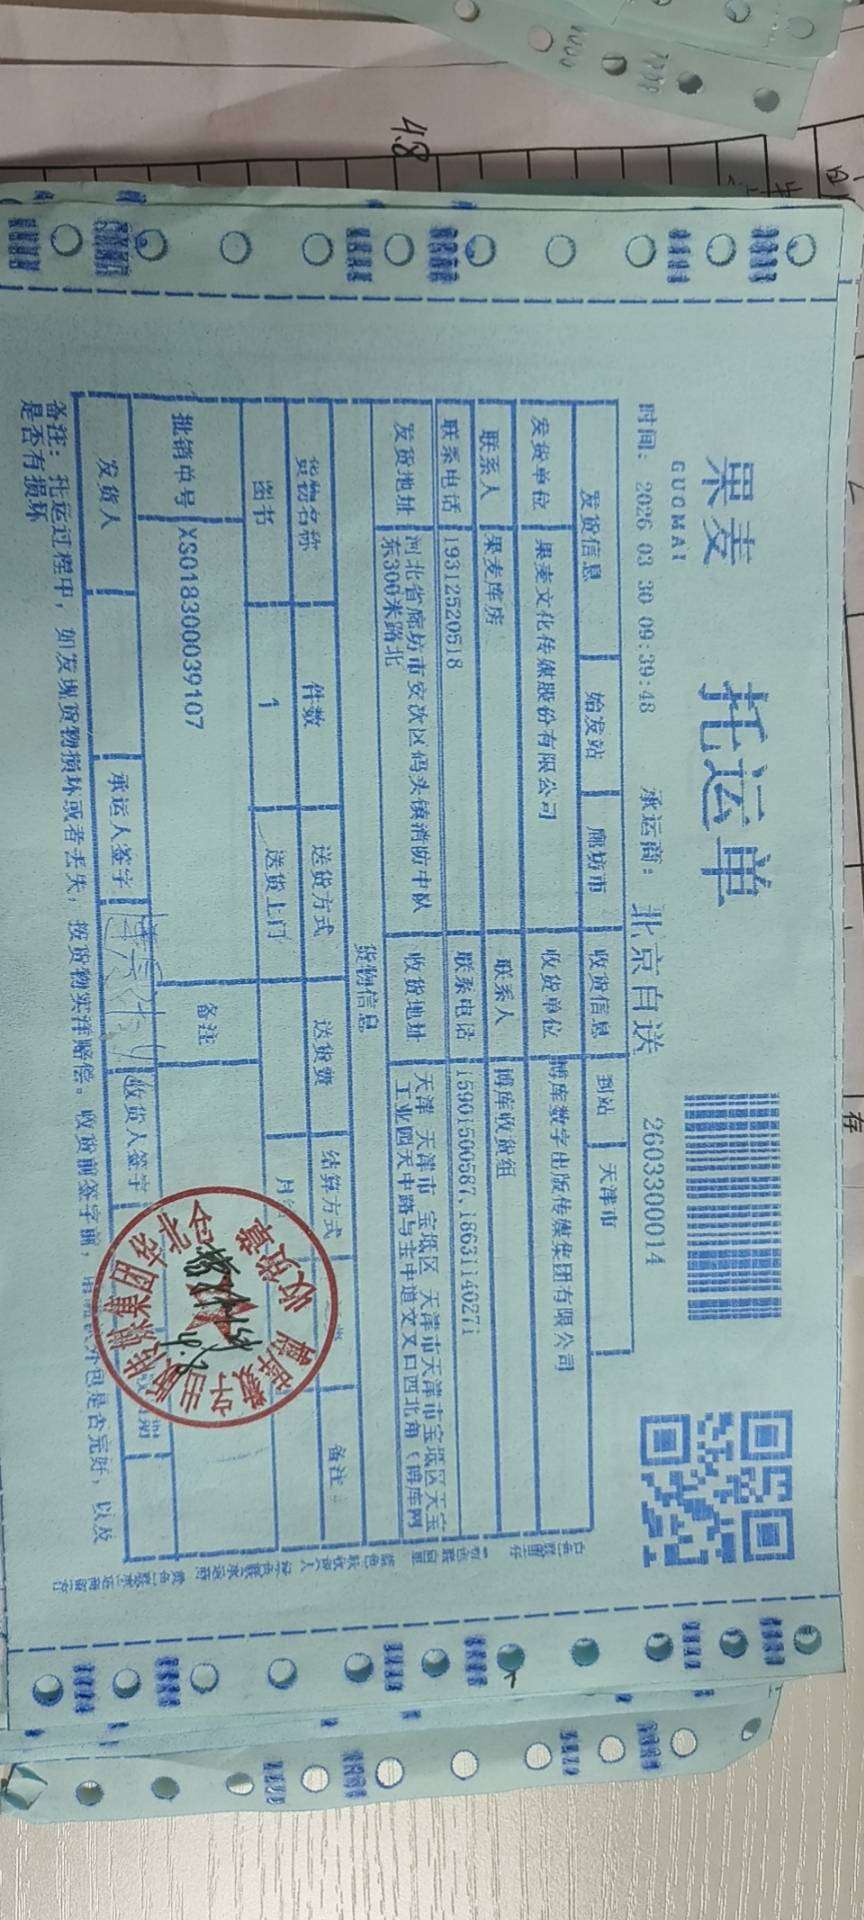 果麦
GUOMAI
托运单
时间: 2026 03 30 09:39:48 承运商: 北京自送 2603300014
发货信息 始发站 廊坊市 收货信息 到站 天津市
发货单位 果麦文化传媒股份有限公司 收货单位 博库数字出版传媒集团有限公司
联系人 果麦库房 联系人 博库收货组
联系电话 19312520518 联系电话 15901500587,18631140271
发货地址 河北省廊坊市安次区码头镇消防中队
东300米路北
收货地址 天津 天津市 宝坻区 天津市天津市宝坻区天宝
工业园天中路与宝中道交叉口西北角(博库网
货物信息
货物名称 件数 送货方式 送货费 结算方式 备注
图书 1 送货上门 月
批销单号 XS018300039107 备注
发货人 承运人签字 收货人签字
备注: 托运过程中, 如发现货物损坏或者丢失, 按货物实洋赔偿。收货前签字前, 外包是否完好, 以及
是否有损坏
收货章
48
存